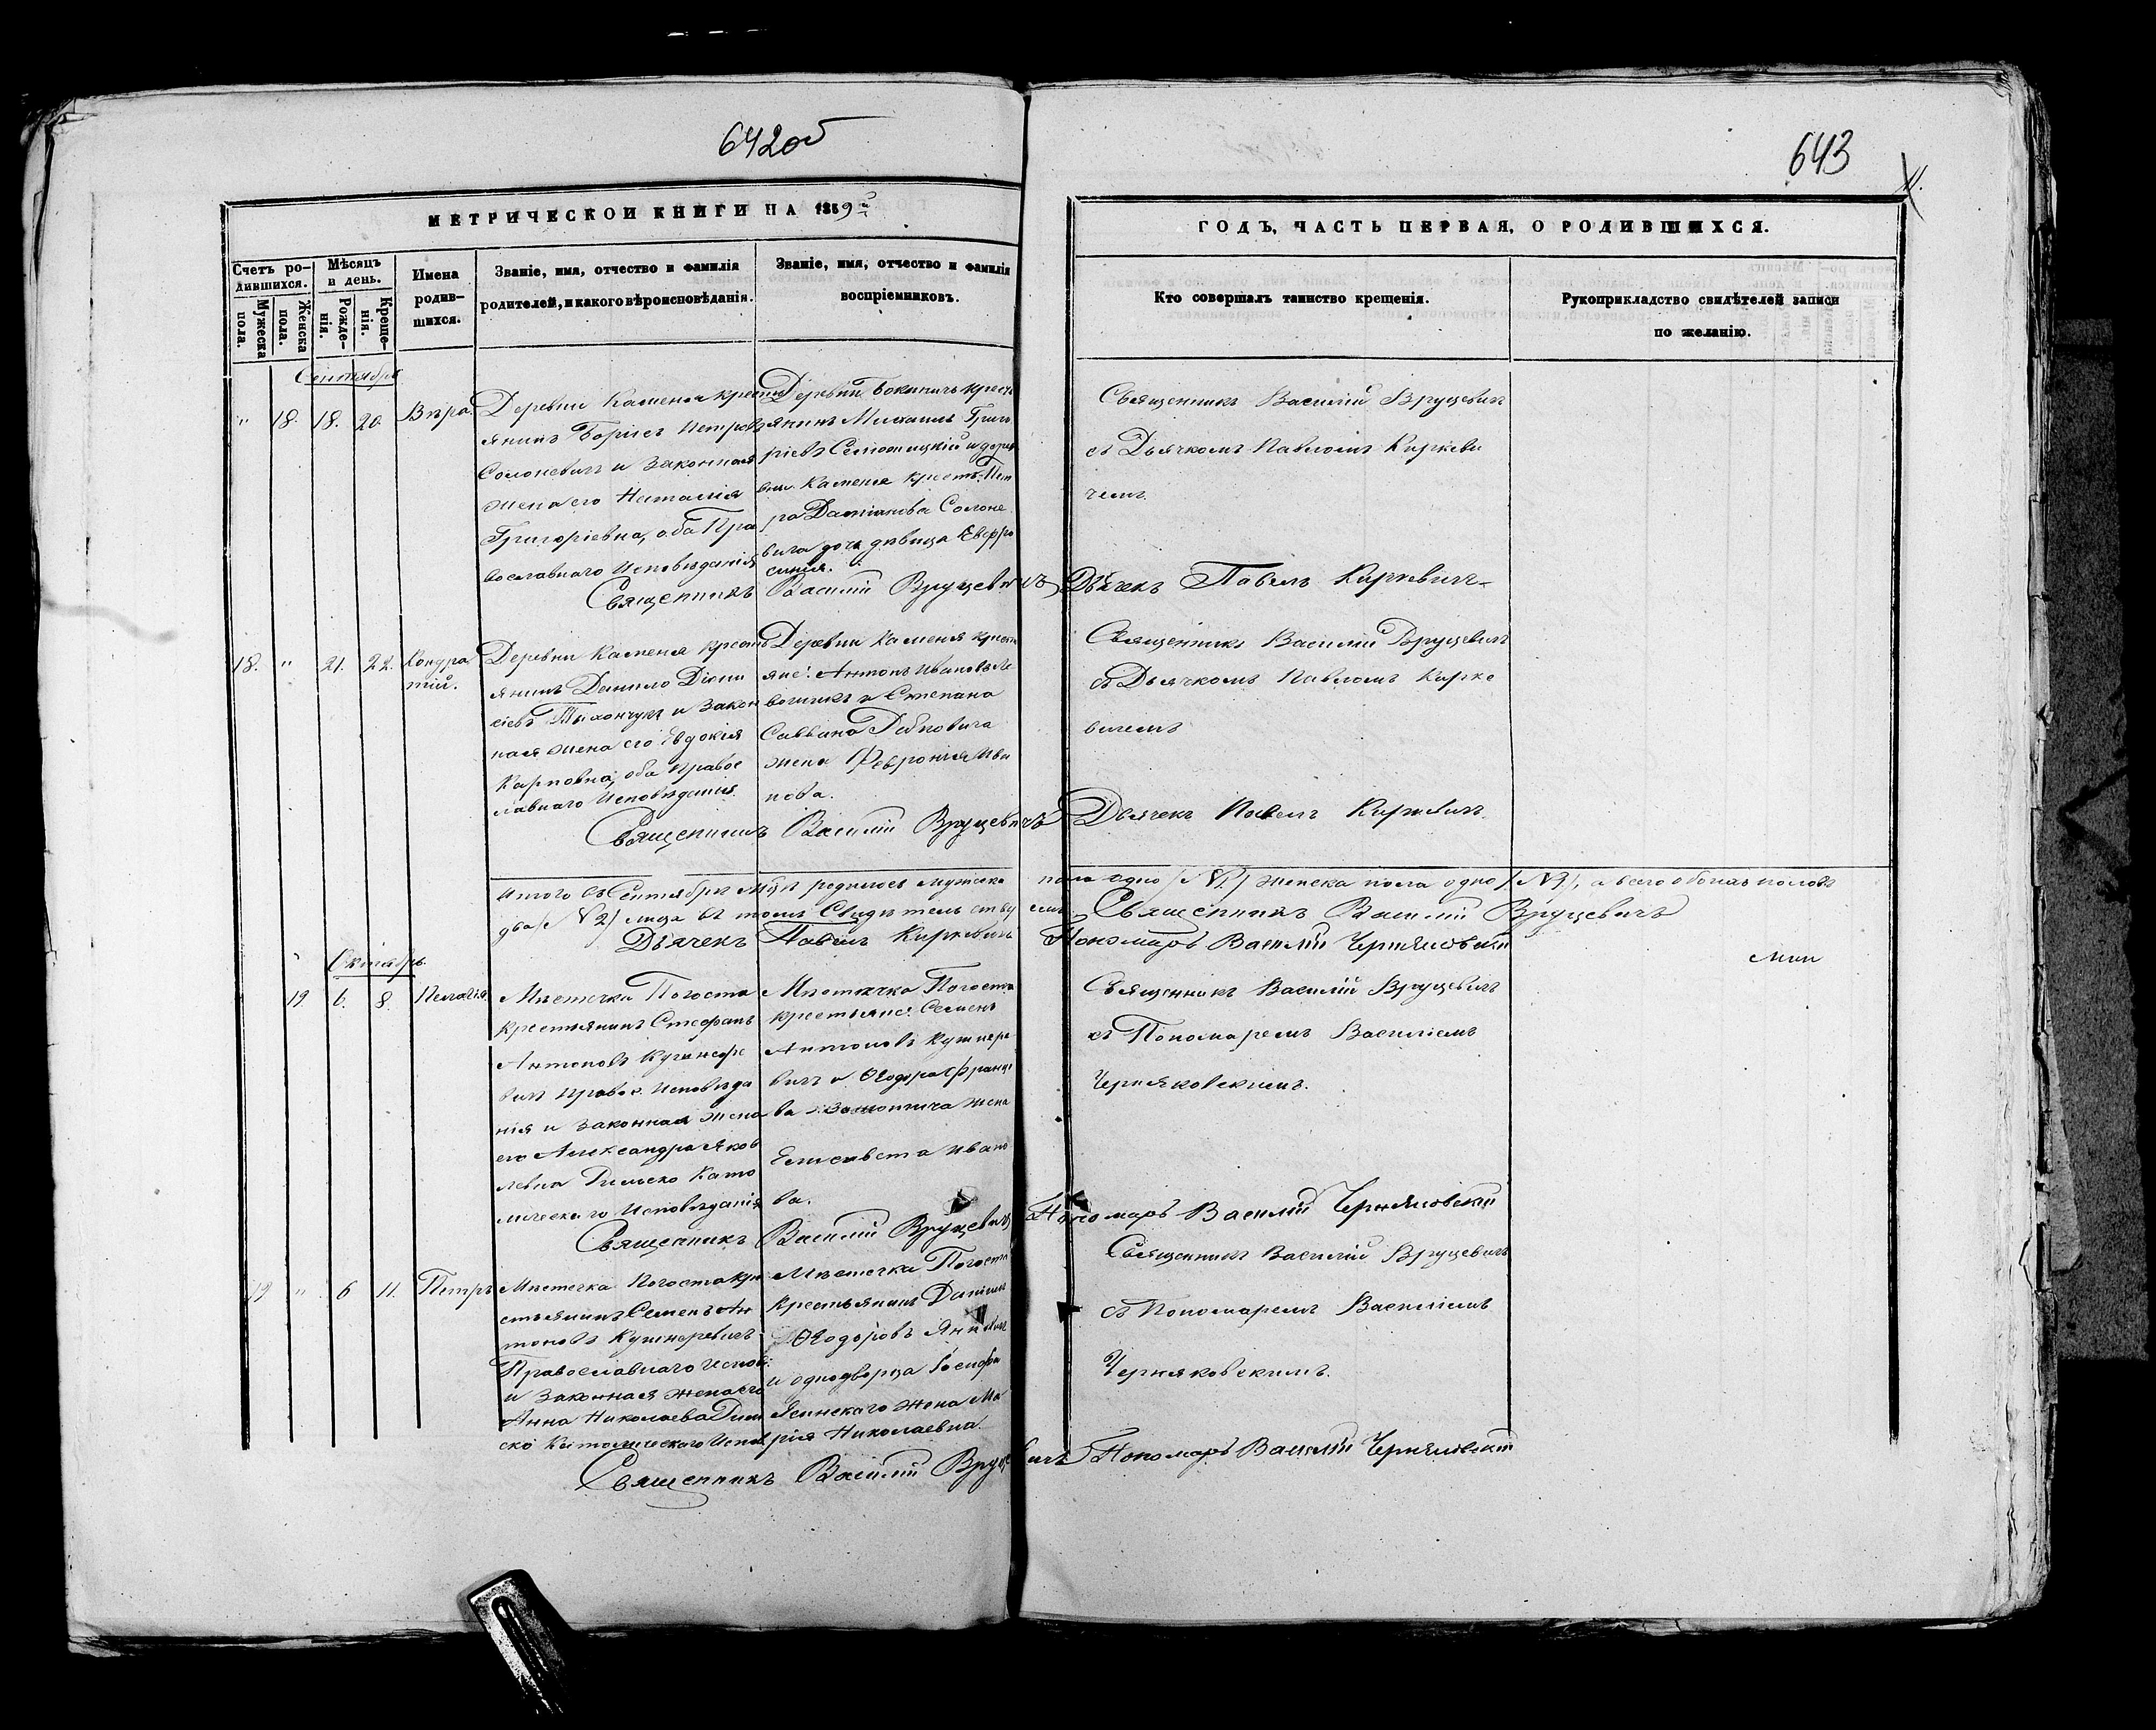 642об
643
11.
МЕТРИЧЕСКОЙ КНИГИ НА 1859й
ГОДЪ, ЧАСТЬ ПЕРВАЯ, О РОДИВШИХСЯ.
Счетъ ро-
дившихся.
Мужеска
пола.
Женска
пола.
Мѣсяцъ
и день.
Рожде-
нія.
Креще-
нія.
Имена
родив-
шихся.
Званіе, имя, отчество и фамилія
родителей, и какого вѣроисповѣданія.
Званіе, имя, отчество и фамилія
воспріемниковъ.
Кто совершалъ таинство крещенія.
Рукоприкладство свидѣтелей записи
по желанію.
Сентябрь
" 18. 18. 20. Вѣра.
Деревни Каменя кресть
янинъ Борисъ Петровъ
Солоневичъ и Законная
жена его Наталія
Григоріевна, оба Пра
вославнаго Исповѣданія
Деревни кресть
янинъ Михаилъ Григо
ріевъ и дерев
ни Каменя крест. Пет
ра Даміанова Солоне
вича дочь дѣвица Евфро
синія.
Священникъ Василій Вруцевичъ
съ Дьячкомъ Павломъ Киркеви
чемъ
Священникъ Василій Вруцевичъ Дьячекъ Павелъ Киркевичъ
18. " 21. 22. Кондра
тій.
Деревни Каменя кресть
янинъ Данило Діони
сіевъ и Закон
ная жена его Евдокія
Карповна, оба Правос
лавнаго Исповѣданія.
Деревни Каменя кресть
яне: Антонъ Ивановъ Ле
вошикъ и Степана
Саввина
жена Февронія Ива
нова.
Священникъ Василій Вруцевичъ
съ Дьячкомъ Павломъ Кирке
вичемъ
Священникъ Василій Вруцевичъ Дьячекъ Павелъ Киркевичъ
Итого въ Сентябрѣ м-цѣ родилось мужска пола одно (№1) женска пола одно (№1), а всего обоихъ половъ
два (№2) лица въ томъ Свидѣтельствуемъ Священникъ Василій Вруцевичъ
Дьячекъ Павелъ Киркевичъ Пономарь Василій Черняковскій
Октябрь.
19 6. 8. Пелагія.
Мѣстечка Погоста
крестьянинъ Стефанъ
Антоновъ Кушнере
вичъ Правос. Исповѣда
нія и Законная жена
его Александра Яков
левна Римско Като
лическаго Исповѣданія
Мѣстечка Погоста
крестьяне: Семенъ
Антоновъ Кушнере
вичъ и Ѳеодора Франце
ва жена
Елисавета Ивано
ва.
Священникъ Василій Вруцевичъ
съ Пономаремъ Василіемъ
Черняковскимъ.
Священникъ Василій Вруцевичъ Пономарь Василій Черняковскій
19 " 6 11. Петръ
Мѣстечка Погоста кре
стьянинъ Семенъ Ан
тоновъ Кушнеревичъ
Православнаго Испов:
и Законная жена его
Анна Николаева Рим
ско Католическаго Испов
Мѣстечка Погоста
крестьянинъ Даніилъ
Ѳеодоровъ
и однодворца Іосифа
Ясинскаго жена Ма
рія Николаевна.
Священникъ Василій Вруцевичъ
съ Пономаремъ Василіемъ
Черняковскимъ.
Священникъ Василій Вруцевичъ Пономарь Василій Черняковскій